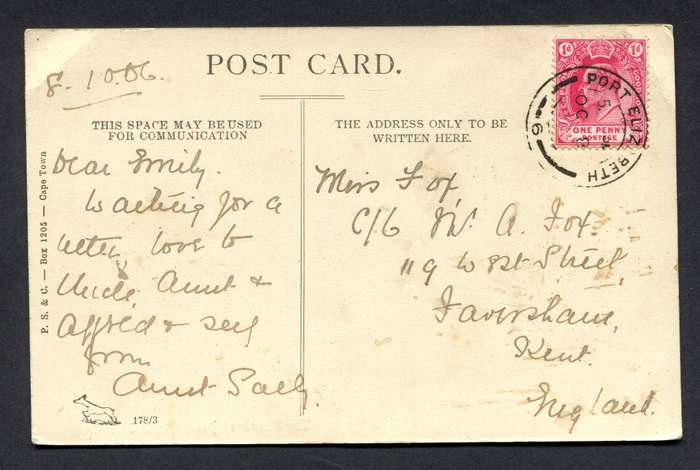 8-10.06.
POST CARD.
THIS SPACE MAY BE USED
FOR COMMUNICATION
THE ADDRESS ONLY TO BE
WRITTEN HERE.
1d 1d
ONE PENNY
POSTAGE
PORT ELIZABETH
9
Dear Emily.
Waiting for a
letter love to
Uncle, Aunt &
Alfred & self
from
Aunt Sally.
Miss Fox,
C/o A. Fox.
119 West Street,
Faversham,
Kent.
England.
P. S. & C. — Box 1205 — Cape Town
178/3